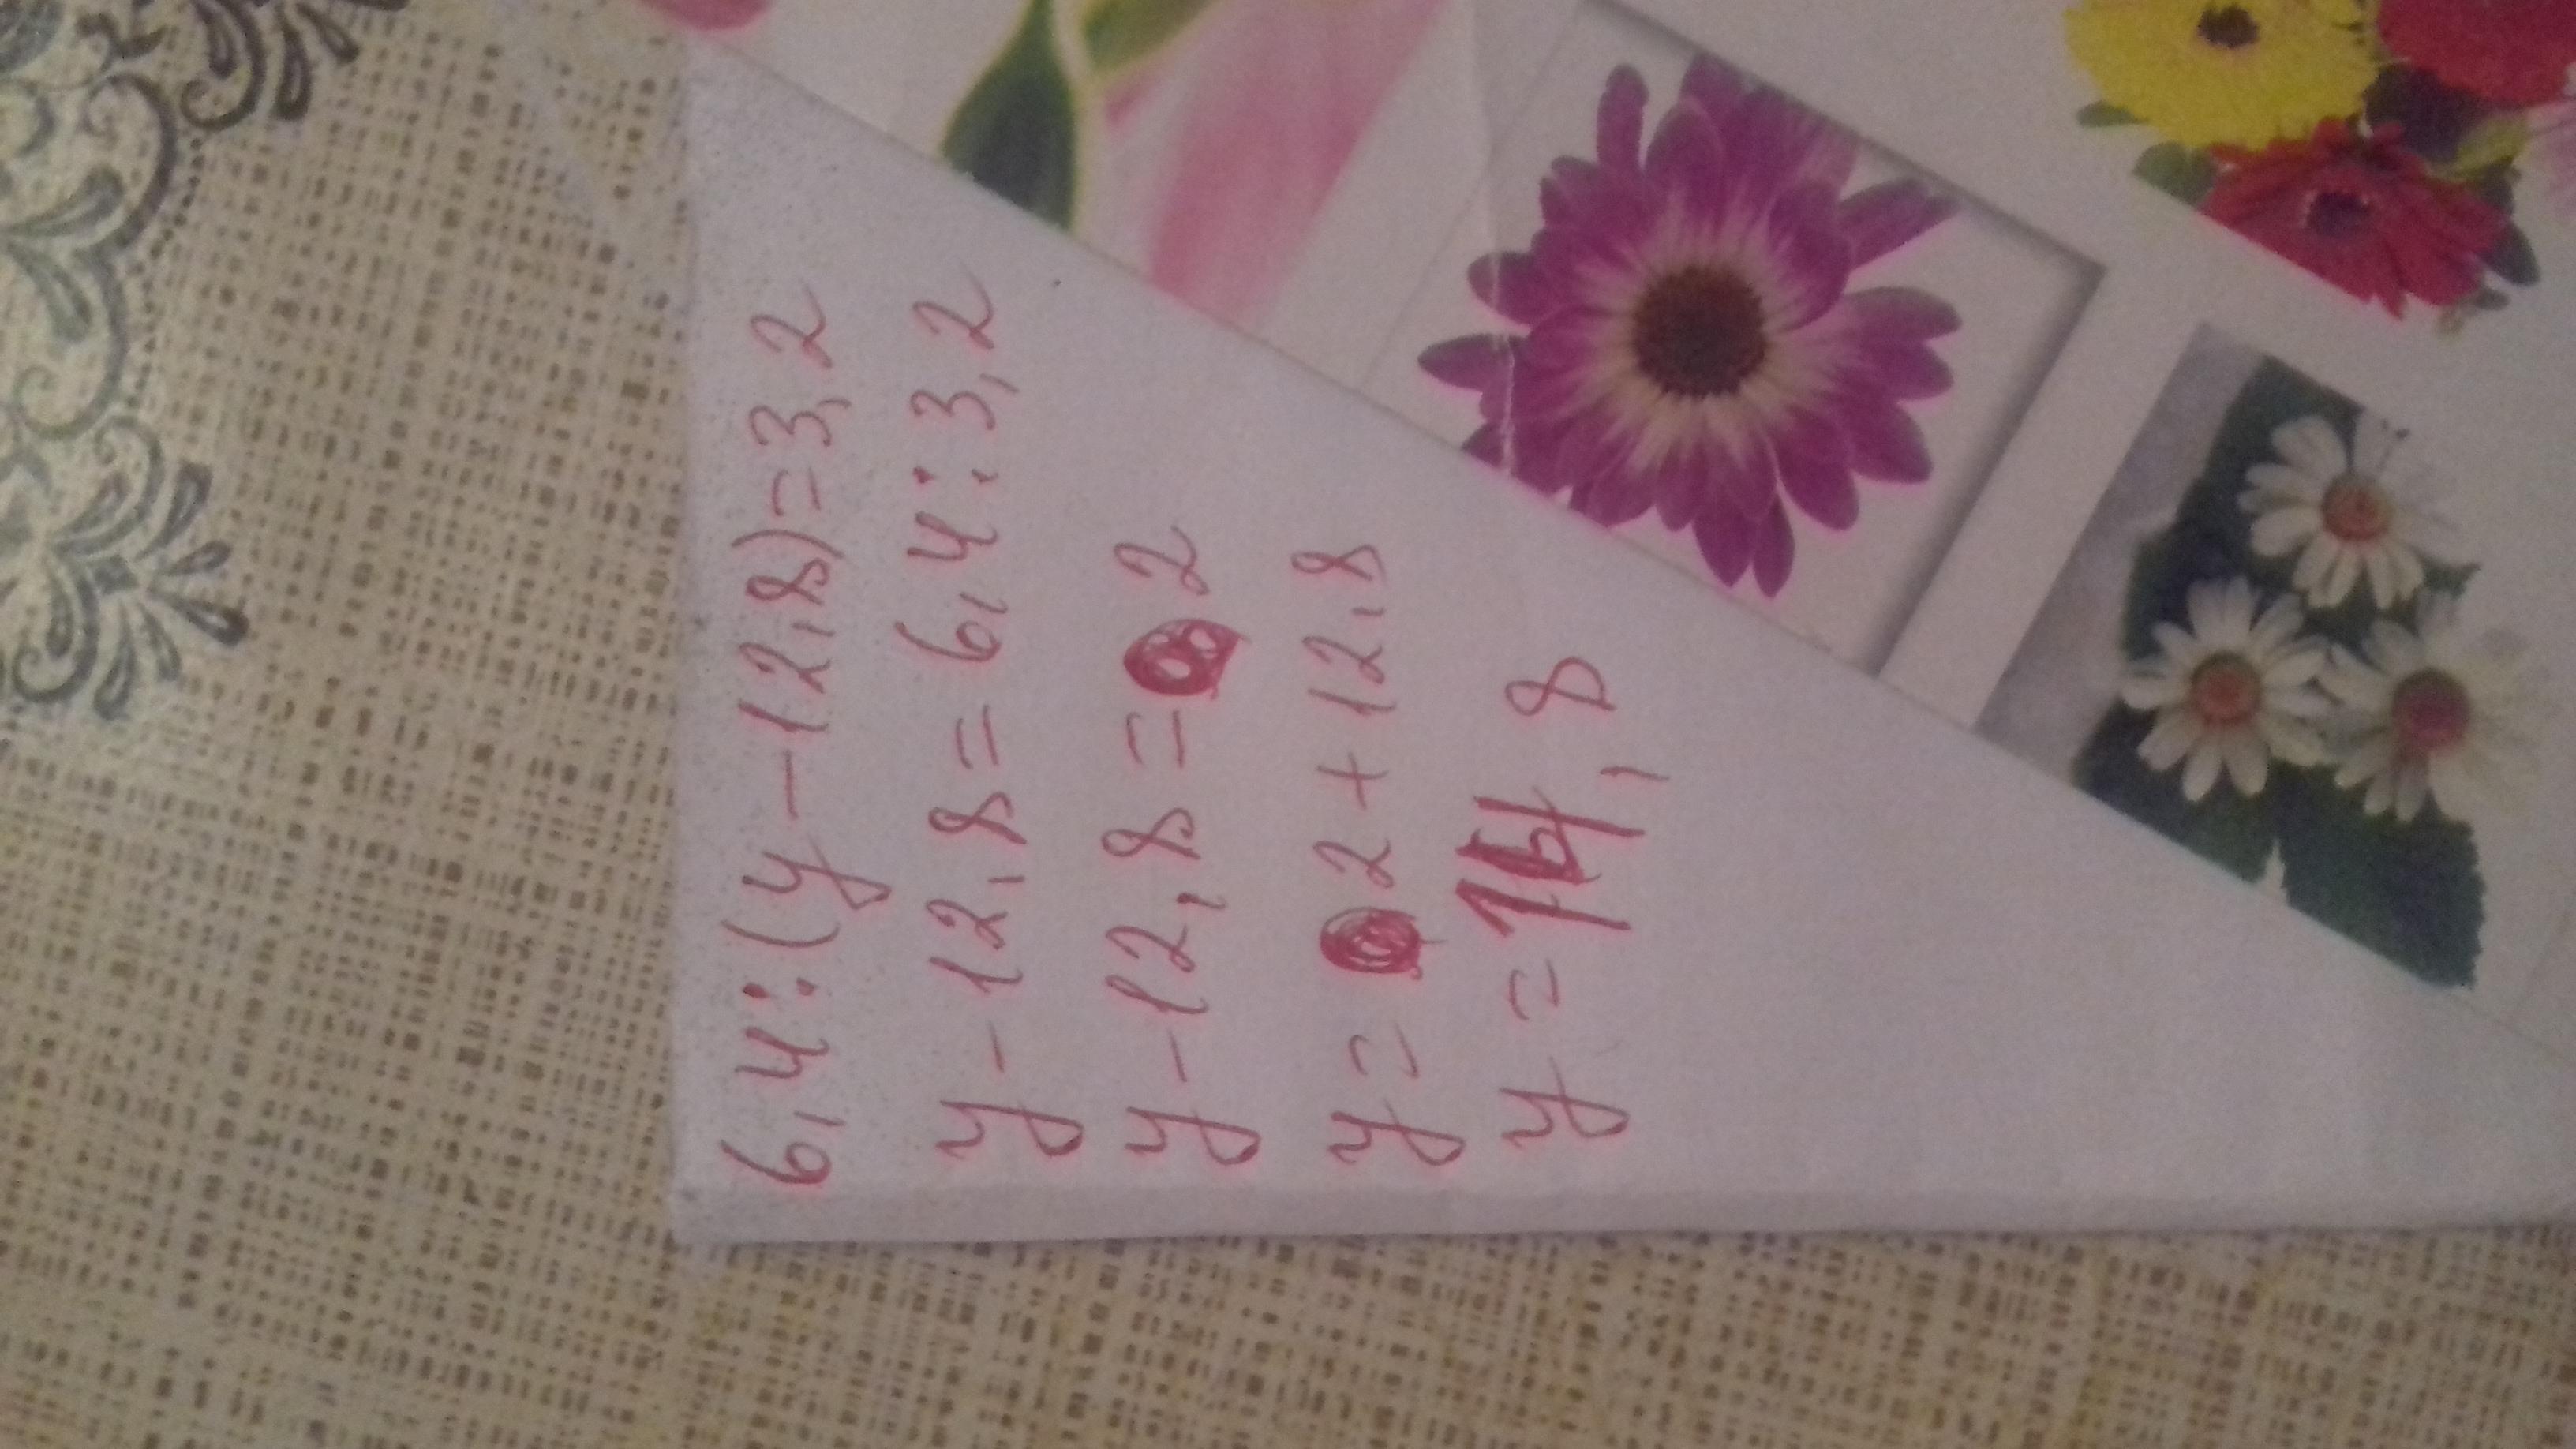 6,4:(y-12,8)=3,2
y-12,8=6,4:3,2
y-12,8=2
y=2+12,8
y=14,8